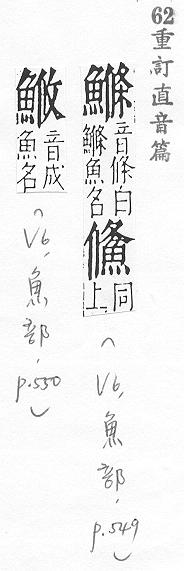 62重訂直音篇
鰷 音條白鰷魚名 鯈 同上
（V6, 魚部, p.549）
音成魚名
（V6, 魚部, p.550）